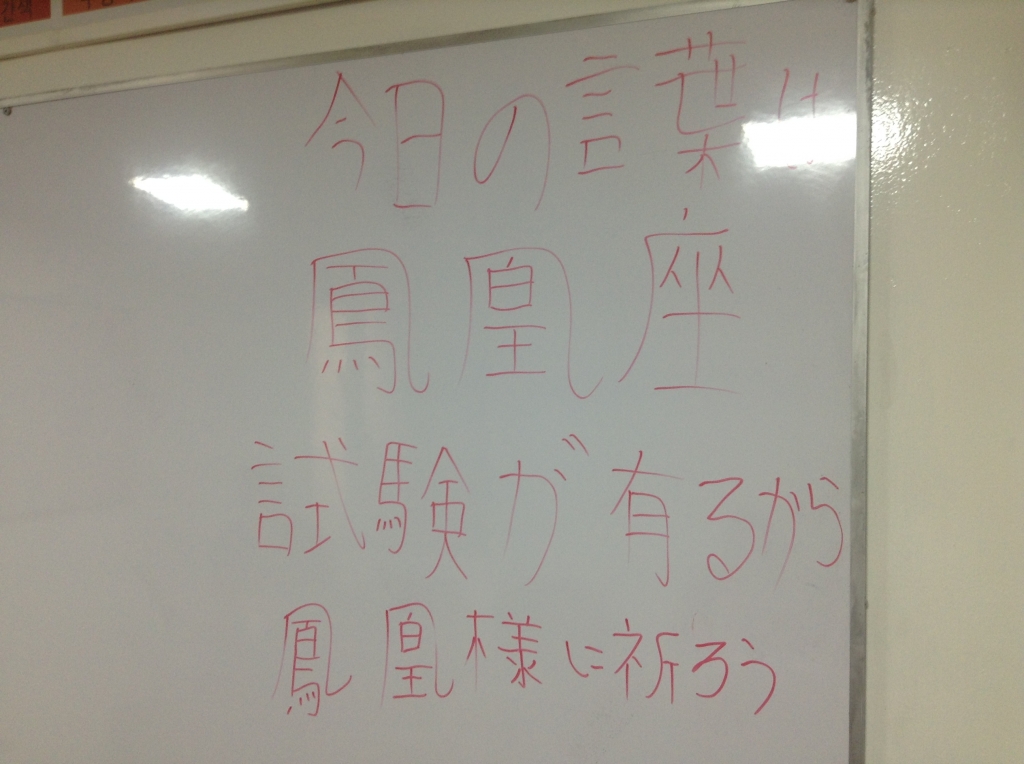 간색
今日の言葉は
鳳凰座
試験が有るから
鳳凰様に祈ろう